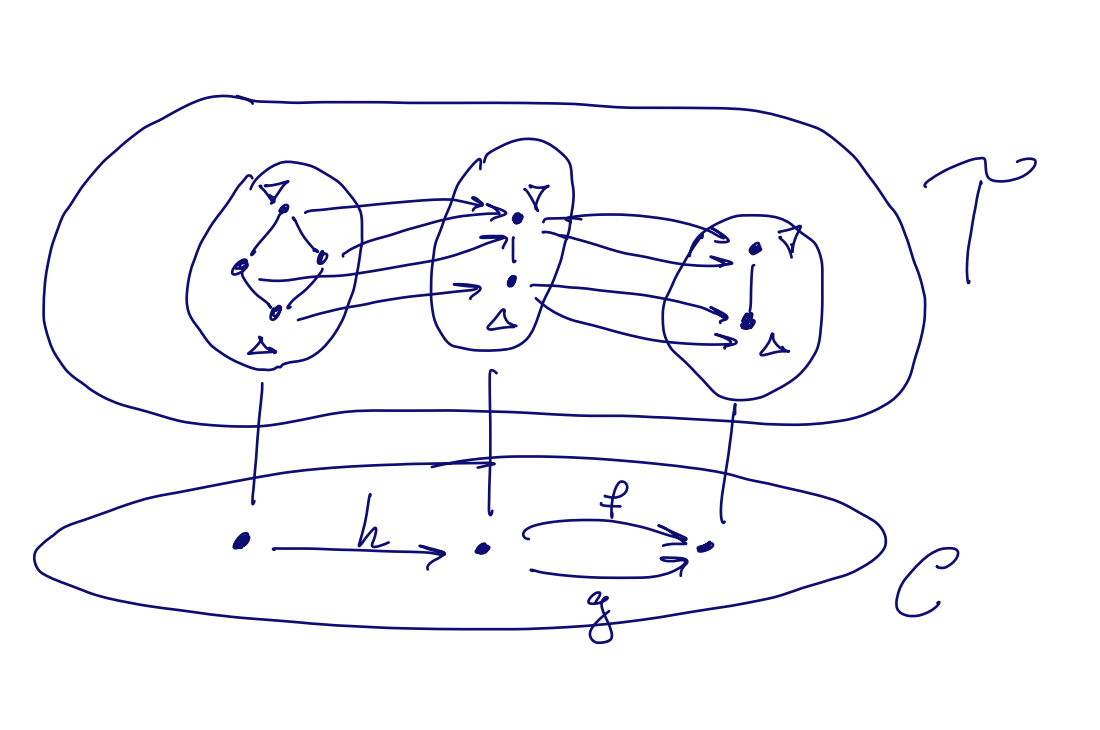 h
f
g
C